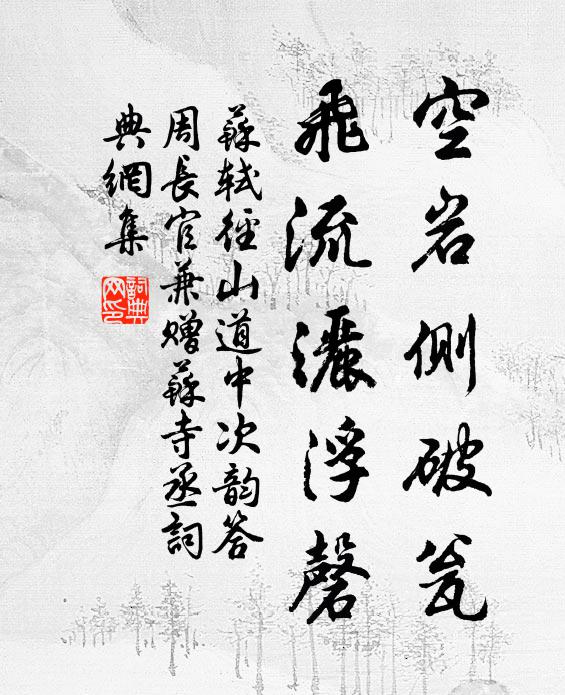 空岩側破瓮
飛流灑浮磬
蘇軾徑山道中次韵答
周長官兼贈蘇寺丞詞
典網集
詞典網印